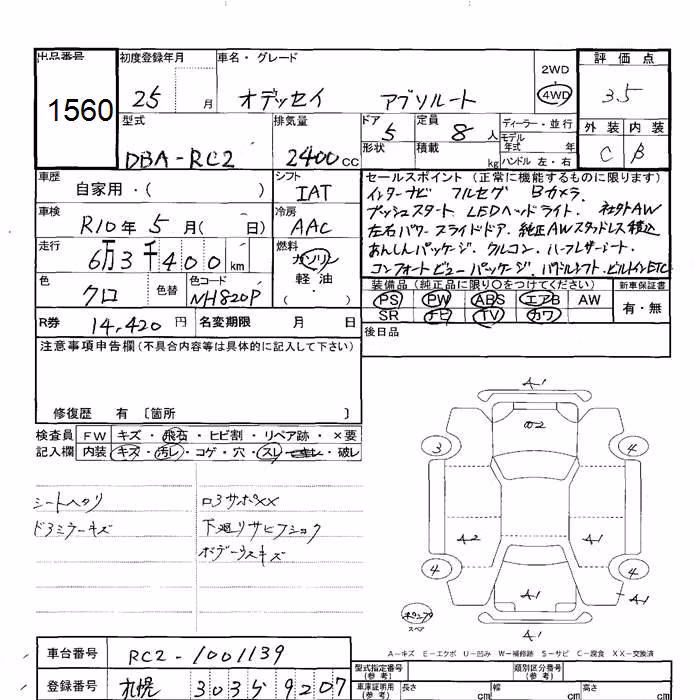 出品番号 1560
初度登録年月 25 月
車名・グレード オデッセイ アブソルート
2WD
4WD
評価点 3.5
外装 C 内装 B
型式 DBA-RC2
排気量 2400 cc
ドア 5 形状
定員 8 人 積載 kg
ディーラー・並行
モデル年式 年
ハンドル 左・右
車歴 自家用・( )
シフト IAT
車検 R10年 5月( 日)
冷房 AAC
走行 6万3千400 km
燃料 ガソリン 軽油 ( )
色 クロ 色替 色コード NH820P
R券 14,420円 名変期限 月 日
セールスポイント(正常に機能するものに限ります)
インターナビ フルセグ Bカメラ
プッシュスタート LEDヘッドライト. 社外AW
左右パワースライドドア. 純正AWスタッドレス積込
あんしんパッケージ. クルコン. ハーフレザーシート
コンフォートビューパッケージ. パドルシフト. ビルトインETC
装備品(純正品に限り○をつけてください)
PS PW ABS エアB AW
SR ナビ TV カワ
新車保証書 有・無
後日品
注意事項申告欄(不具合内容等は具体的に記入して下さい)
修復歴 有 〔箇所 〕
検査員記入欄
FW キズ・飛石・ヒビ割・リペア跡・×要
内装 キズ・汚レ・コゲ・穴・スレ・破レ
シートヘタリ
ドミラーキズ
下廻りサビフショク
ボデーウスキズ
A-1
3 4
A-2 A-1
4 4
A-1
A-1
スペア
A-キズ E-エクボ U-凹み W-補修跡 S-サビ C-腐食 XX-交換済
車台番号 RC2-1001139
登録番号 札幌 303 9207
型式指定番号(参考) 類別区分番号(参考)
車庫証明用(参考) 長さ cm 幅 cm 高さ cm